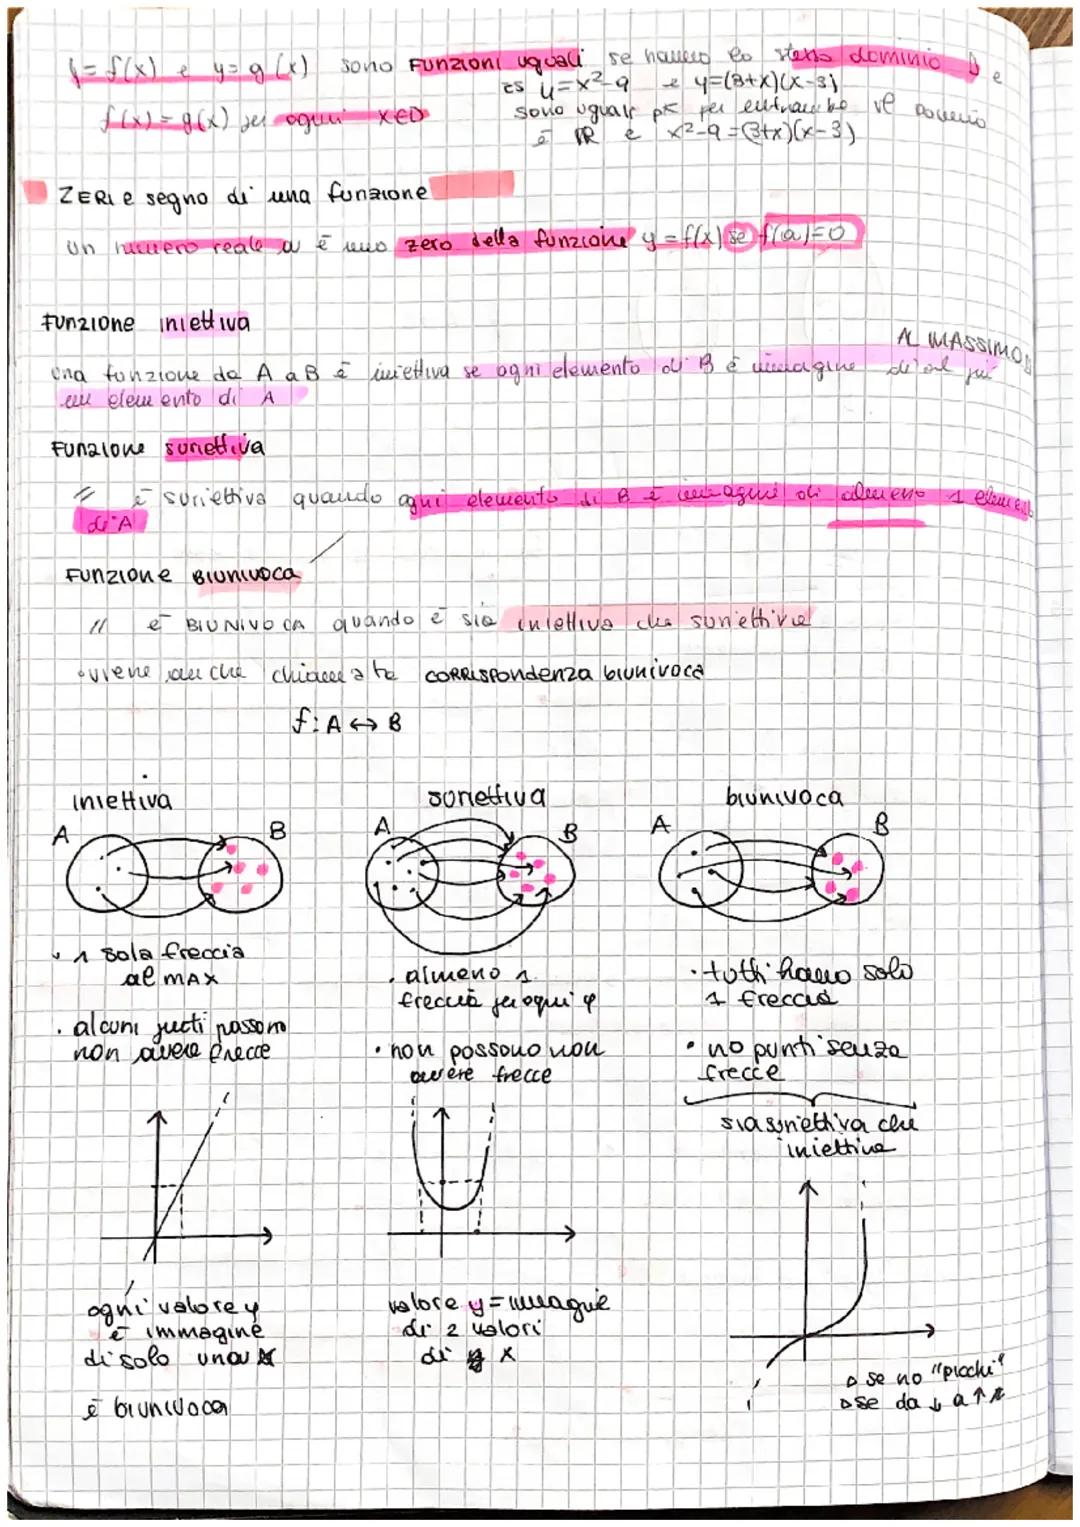 y=f(x) e y=g(x) sono FUNZIONI uguali se hanno lo stesso dominio D e
f(x)=g(x) per ogni x∈D
es y=x²-9 e y=(3+x)(x-3)
sono uguali pk per entrambe il dominio
è ℝ e x²-9=(3+x)(x-3)
ZERI e segno di una funzione
un numero reale a è uno zero della funzione y=f(x) se f(a)=0
Funzione iniettiva
AL MASSIMO
una funzione da A a B è iniettiva se ogni elemento di B è immagine di al più
un elemento di A
Funzione suriettiva
// è suriettiva quando ogni elemento di B è immagine di almeno 1 elemento
di A
Funzione BIUNIVOCA
// è BIUNIVOCA quando è sia iniettiva che suriettiva
•viene anche chiamata CORRISPONDENZA biunivoca
f: A ↔ B
iniettiva suriettiva biunivoca
A B A B A B
• 1 sola freccia
al MAX
• alcuni punti possono
non avere frecce
• almeno 1
freccia per ogni φ
• non possono non
avere frecce
• tutti hanno solo
1 freccia
• no punti senza
frecce
sia suriettiva che
iniettiva
ogni valore y
è immagine
di solo una x
è biunivoca
valore y = immagine
di 2 valori
di x
▷ se no "picchi"
▷ se da ↓ a ↑